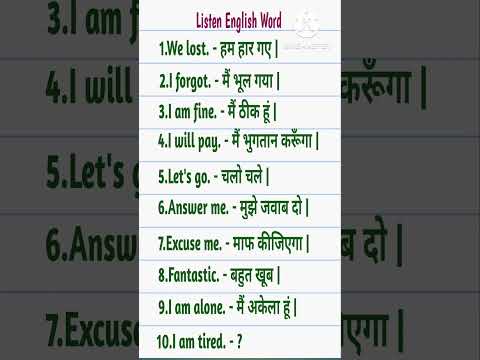 Listen English Word
1.We lost. - हम हार गए |
2.I forgot. - मैं भूल गया |
3.I am fine. - मैं ठीक हूं |
4.I will pay. - मैं भुगतान करूँगा |
5.Let's go. - चलो चले |
6.Answer me. - मुझे जवाब दो |
7.Excuse me. - माफ कीजिएगा |
8.Fantastic. - बहुत खूब |
9.I am alone. - मैं अकेला हूं |
10.I am tired. - ?
3.I am f
4.I will
करूँगा |
5.Let's g
6.Answ
ब दो |
7.Excus
एगा |